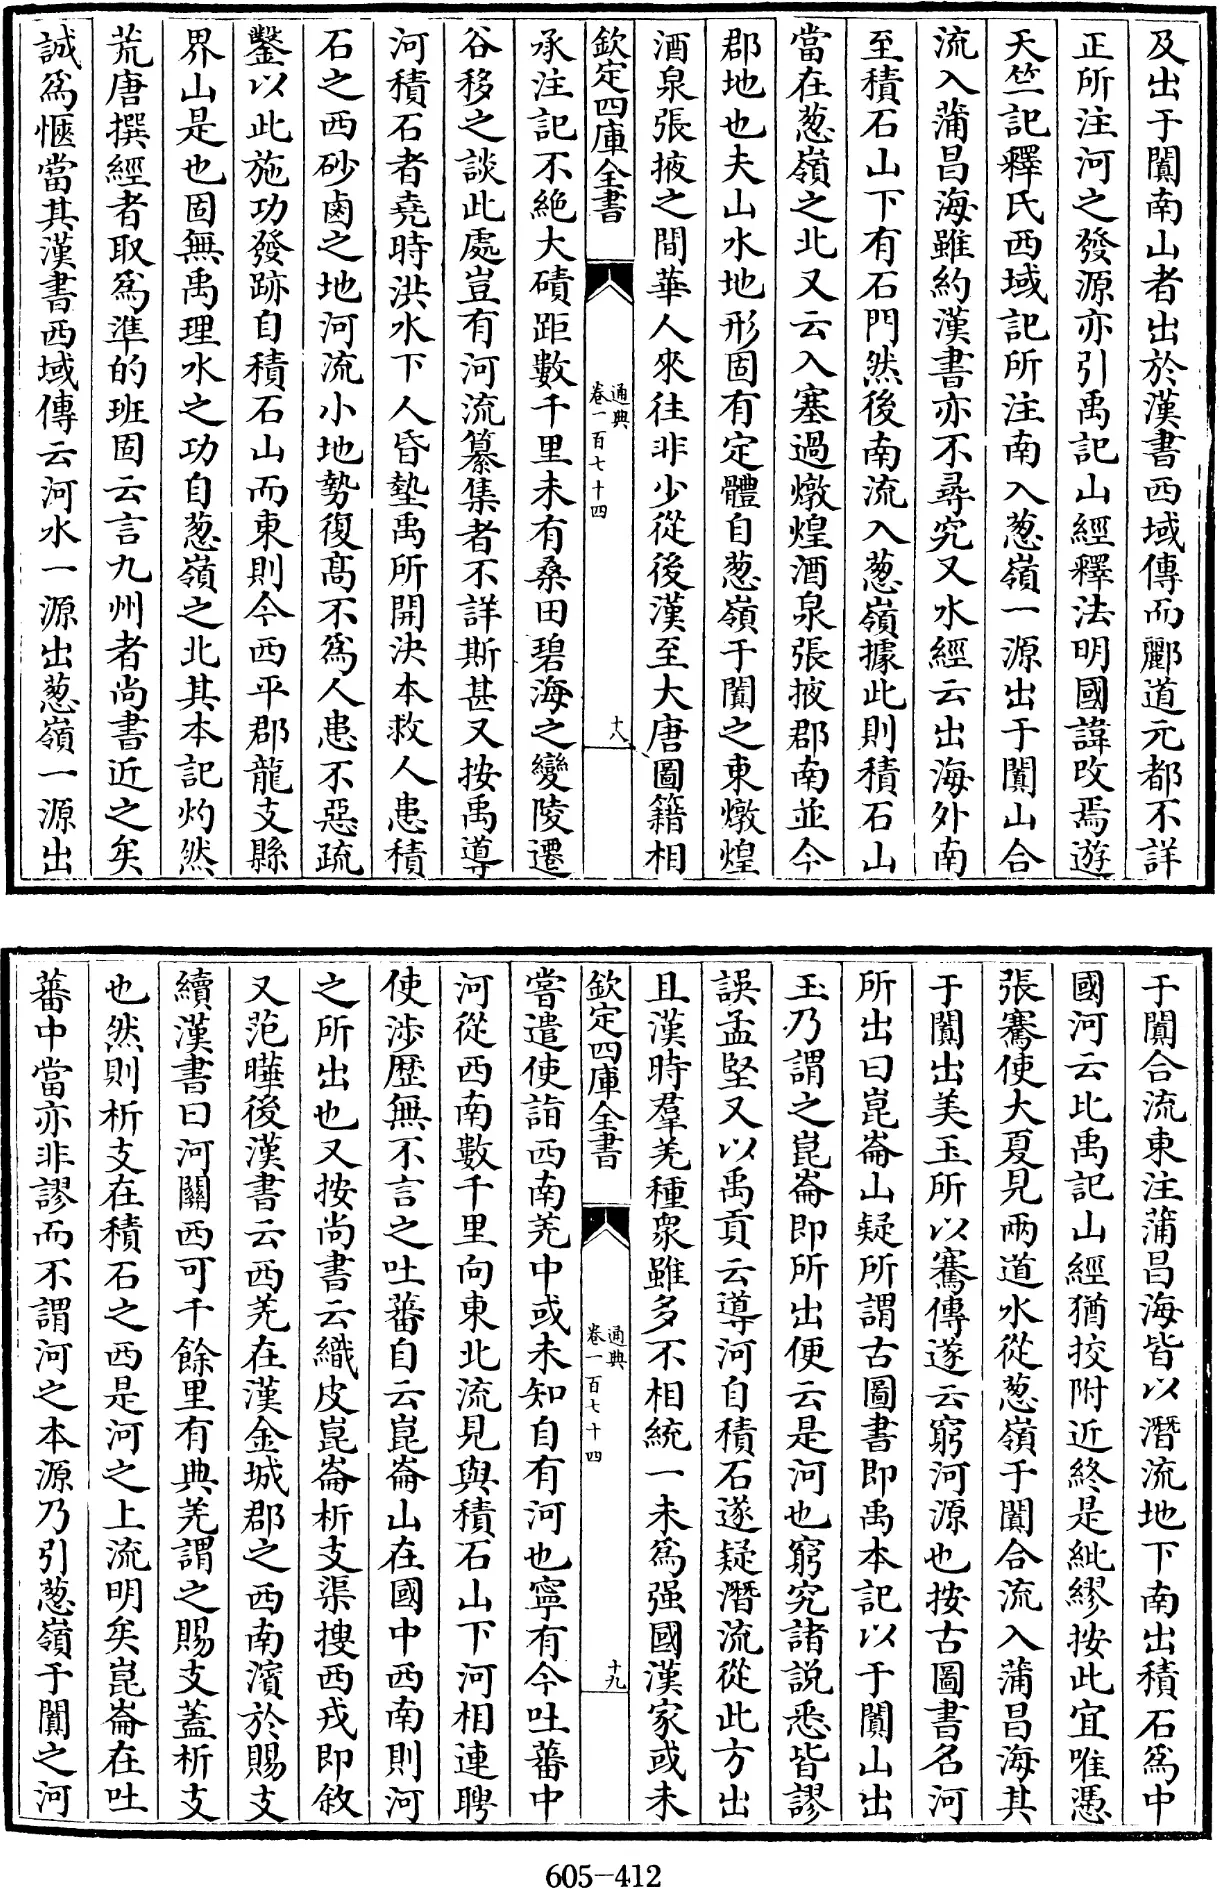 及出于闐南山者出於漢書西域傳而酈道元都不詳
正所注河之發源亦引禹記山經釋法明國諱改焉遊
天竺記釋氏西域記所注南入葱嶺一源出于闐山合
流入蒲昌海雖約漢書亦不尋究又水經云出海外南
至積石山下有石門然後南流入葱嶺據此則積石山
當在葱嶺之北又云入塞過燉煌酒泉張掖郡南並今
郡地也夫山水地形固有定體自葱嶺于闐之東燉煌
酒泉張掖之間華人來往非少從後漢至大唐圖籍相
欽定四庫全書
通典
卷一百七十四
十八
承注記不絶大磧距數千里未有桑田碧海之變陵遷
谷移之談此處豈有河流纂集者不詳斯甚又按禹導
河積石者堯時洪水下人昏墊禹所開決本救人患積
石之西砂鹵之地河流小地勢復髙不爲人患不惡疏
鑿以此施功發跡自積石山而東則今西平郡龍支縣
界山是也固無禹理水之功自葱嶺之北其本記灼然
荒唐撰經者取爲準的班固云言九州者尚書近之矣
誠爲愜當其漢書西域傳云河水一源出葱嶺一源出
于闐合流東注蒲昌海皆以潛流地下南出積石爲中
國河云比禹記山經猶挍附近終是紕繆按此宜唯憑
張騫使大夏見兩道水從葱嶺于闐合流入蒲昌海其
于闐出美玉所以騫傳遂云窮河源也按古圖書名河
所出曰崑崙山疑所謂古圖書即禹本記以于闐山出
玉乃謂之崑崙即所出便云是河也窮究諸説悉皆謬
誤孟堅又以禹貢云導河自積石遂疑潛流從此方出
且漢時羣羌種衆雖多不相統一未爲强國漢家或未
欽定四庫全書
通典
卷一百七十四
十九
嘗遣使詣西南羌中或未知自有河也寧有今吐蕃中
河從西南數千里向東北流見與積石山下河相連聘
使涉歴無不言之吐蕃自云崑崙山在國中西南則河
之所出也又按尚書云織皮崑崙析支渠搜西戎即敘
又范曄後漢書云西羌在漢金城郡之西南濱於賜支
續漢書曰河關西可千餘里有典羌謂之賜支蓋析支
也然則析支在積石之西是河之上流明矣崑崙在吐
蕃中當亦非謬而不謂河之本源乃引葱嶺于闐之河
605-412